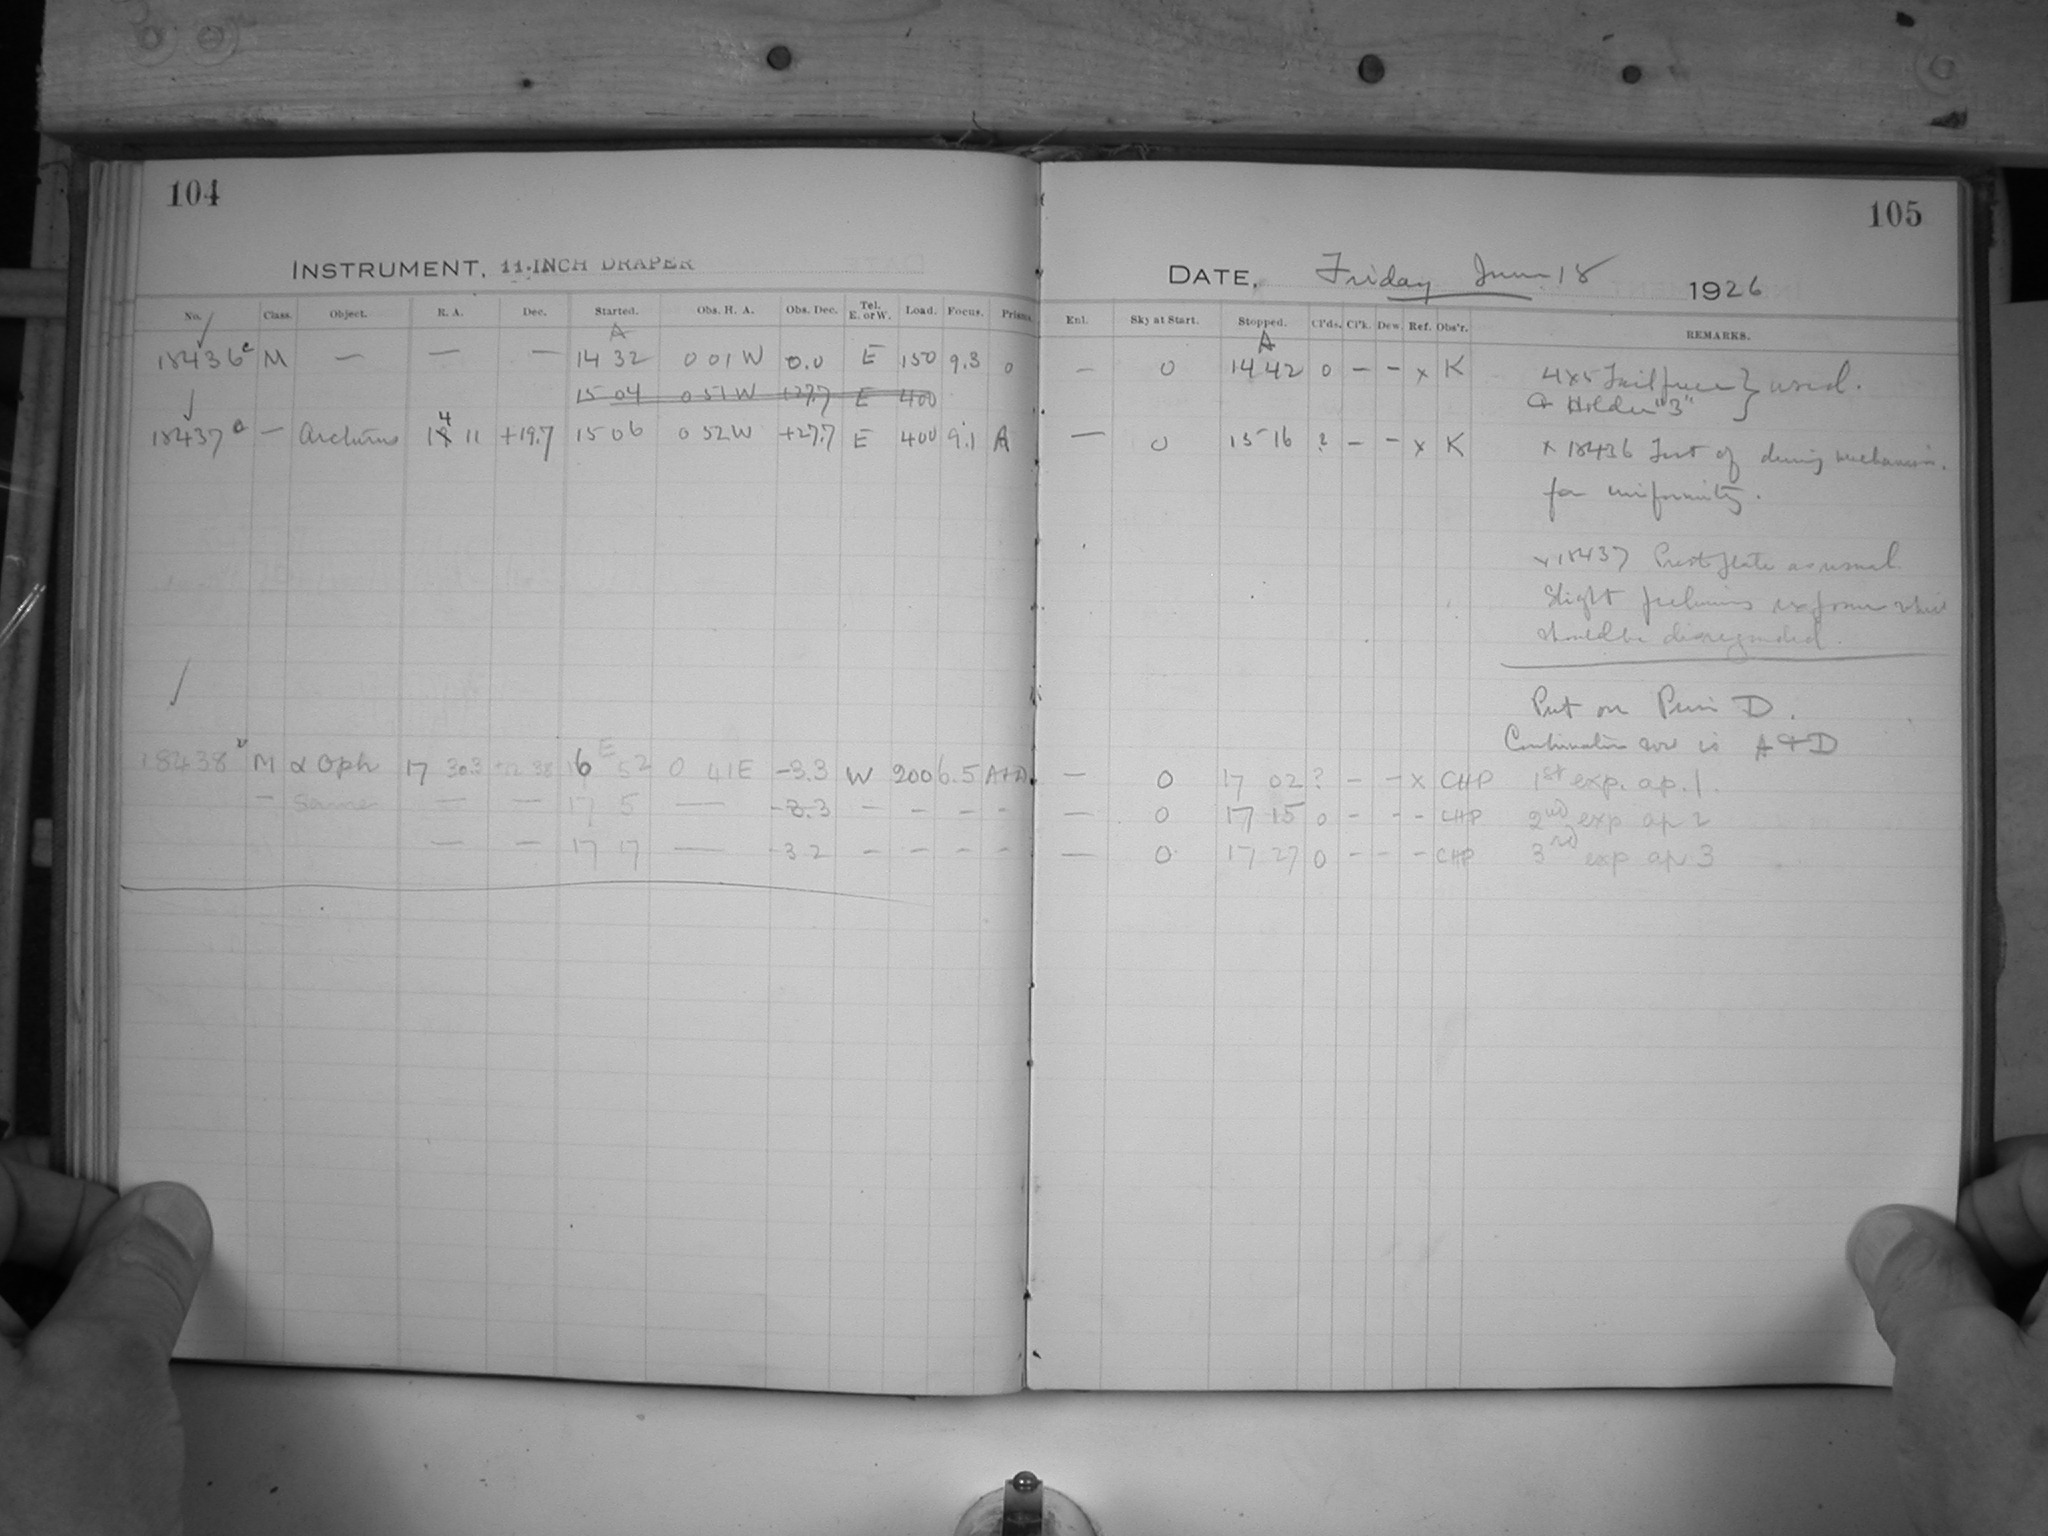 104
INSTRUMENT, 11-INCH DRAPER
No. Class. Object. R. A. Dec. Started. Obs. H. A. Obs. Dec. Tel. E. or W. Load. Focus. Prisms.
A
18436 c M — — — 14 32 0 01 W 0.0 E 150 9.3 0
15 04 0 51 W +27.7 E 400
18437 — Arcturus 14 11 +19.7 15 06 0 52 W +27.7 E 400 9.1 A
18438 M α Oph 17 30.3 +12 38 16 52 0 41 E -3.3 W 200 6.5 A+D
E
— Same — — 17 5 — -3.3 — — — —
— — 17 17 — -3.2 — — — —
105
DATE, Friday June 18 1926
Enl. Sky at Start. Stopped. Cl'ds. Cl'k. Dew. Ref. Obs'r. REMARKS.
A
— 0 14 42 0 — — x K 4x5 } used.
Holder "3"
— 0 15 16 ? — — x K x 18436 Test of driving mechanism
for uniformity.
x 18437 Prest plate as usual
Slight exposure which
should be disregarded.
Put on Prism D.
Combination now is A+D
— 0 17 02 ? — — x CHP 1st exp. ap. 1.
— 0 17 15 0 — — — CHP 2nd exp ap 2
— 0 17 27 0 — — — CHP 3rd exp ap 3